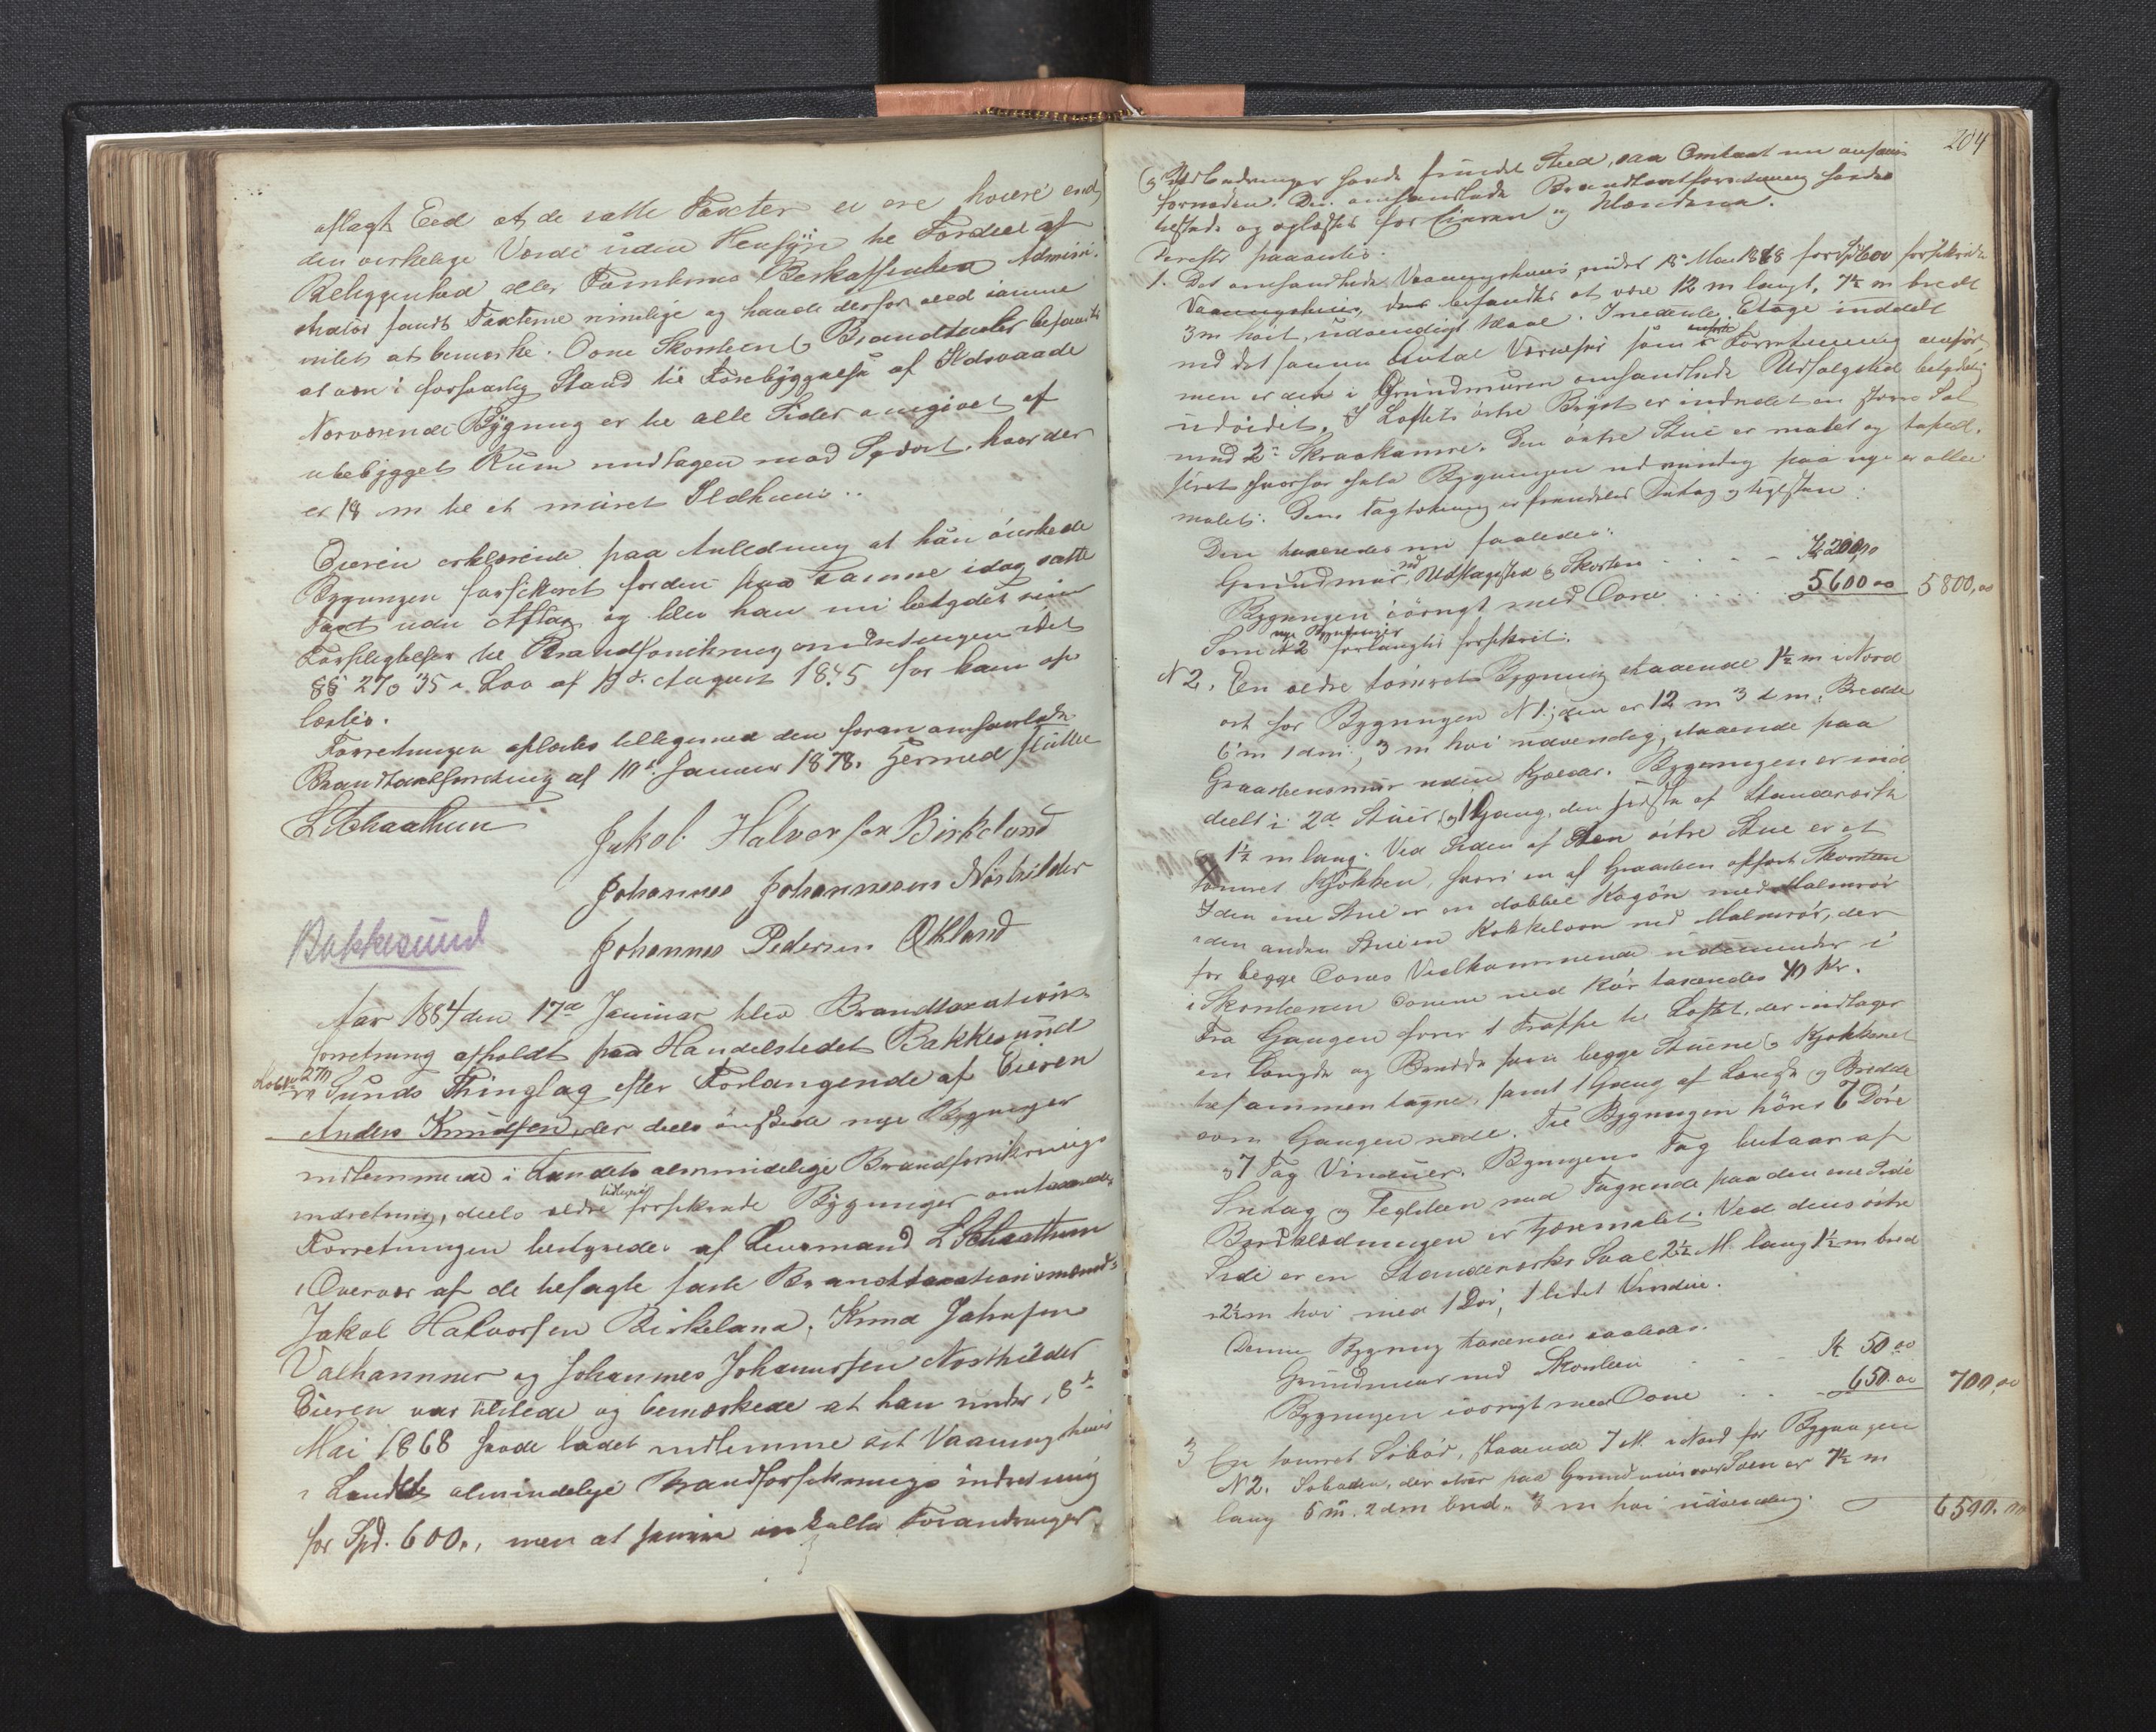 aflagt Eed at de satte Taxter ei ere hoiere end
den virkelige Værdi uden Hensÿn til Fordeel af
Beliggenhed eller Tomternes Beskaffenhed Admini-
strator fandt Taxterne rimelige og havde derfor ved samme
intet at bemærke. Ovne Skorsteen & Brandtaxter befandtes
at være i forsvarlig Stand til Forebyggelse af Ildsvaade
Nærværende Bÿgning er til alle Sider omgivet af
ubebÿgget Rum undtagen mod Sÿdost, hvor der
er 18 m til et muret Ildhuus..
Eieren erklærende paa Anledning at han ønskede
Bygningen forsikeret for den paa samme idag satte
Taxt uden Afslag og blev han nu betydet sine
Forpligtelser til Brandforsikringsindretningen idet
§§ 27 og 35 i Lov af 19de August 1845 for ham op
læstes.
Forretningen oplæstes tilligemed den foran omhandlede
Brandtaxtforretning af 10de Januar 1878. Hermed sluttet
L Schaathun
Jakob Halvorsen Birkeland
Johannes Johannessen Nøsthilder
Johannes Pedersen Økland
Bakkesund
Aar 1884 den 17de Januar blev Brandtaxations
forretning afholdt paa Handelstedet Bakkesund
Sunds Thinglag efter Forlangende af Eieren
Anders Knudsen, der deels ønskede nye Bygninger
indlemmede i Landets almindelige Brandforsikrings
indretning, deels ældre tidligere forsikrede Bygninger omtaxerede.
Forretningen bestyredes af Lensmand L Schaathun
i Overvær af de befagte faste Brandtaxationsmænd
Jakob Halvorsen Birkeland, Knud Johnsen
Valhammer og Johannes Johannessen Nøsthilder
Eieren var tilstede og bemærkede at han under 18de
Mai 1868 havde ladet indlemme sit Vaaningshuus
i Landets almindelige Brandforsikrings indretning
for Spd. 600., men at samme enkelte Forandringer
204
& Udbedringer havde fundet Sted, saa Omtaxt nu ansaaes
fornøden. Den omhandlede Brandtaxtforretning havdes
tilstede og oplæstes for Eieren og Mændene.
Derefter paavistes:
1. Det omhandlede Vaaningshuus under 18de Mai 1868 for Spd 600 forsikrede
Vaaningshuus, der befandtes at være 12 m langt, 7½ m bredt
3 m høit, udvendigt Maal. I nederste Etage inddelt
med det samme Antal Værelser som i Forretningen anført
men er det i Grundmuren omhandlede Udsalgsted betydelig
udvidet. I Loftets østre Bryst er indredet en større Sal
med 2de Skraakamre. Den østre Stue er malet og taped.
seret hvorhos hele Bygningen udvendig paa nye er olie
malet. Dens Tagtækning er fremdeles Sutag & Teglsteen.
Den taxeredes nu saaledes:
Grundmur med Udsalgsted & Skorsten . . . Kr 200,00
Bygningen iøvrigt med Ovne . . . . 5600 00 5800,00
Som N 2 nye Bygninger forlangtes forsikret:
N 2. En ældre tømret Bygning staaende 1½ m i Nord
ost for Bygningen N 1; den er 12 m 3 dm, Bredde
6 m 1 dm, 3 m høi udvendig, staaende paa
Graasteensmur uden Kjælder. Bygningen er ind
deelt i 2de Stuer & 1 Gang, den sidste af Standerværk
1½ m lang. Ved Siden af den østre Stue er et
tømret Kjøkken, hvori en af Graasteen opført Skorsteen
I den ene Stue er en dobbel Kogovn med Malmrør
i den anden Stue en Kakkelovn med Malmrør, der
for begge Ovnes Vedkommende udmunder i
i Skorstenen Ovnene med Rør taxeredes 40 Kr.
Fra Gangen fører 1 Trappe til Loftet, der indtager
en Længde og Bredde som begge Stuene & Kjøkkenet
tilsammentagne, samt 1 Gang af Længde & Bredde
som Gangen nede. Til Bygningen hører 6 Døre
& 7 Fag Vinduer. Bygningens Tag bestaar af
Sutag & Teglsteen med Tagrende paa den ene Side
Bordklædningen er tjæremalet. Ved dens østre
Side er en Standerverks Sval 2½ M. lang 1½ m bred
2½ m høi med 1 Dør, 1 lidet Vindue.
Denne Bygning taxeredes saaledes.
Grundmuur med Skorsteen . . . Kr 50 00
Bygningen iøvrigt med Ovne . . . 650.00 700,00
3 En tømret Søbod, staaende 7 M. i Nord for Bygningen
N 2. Søboden, der staar paa Grundmuur ved Søen er 7½ m
lang 5 m. 2 dm bred. 3 m høi udvendig.
6500.00